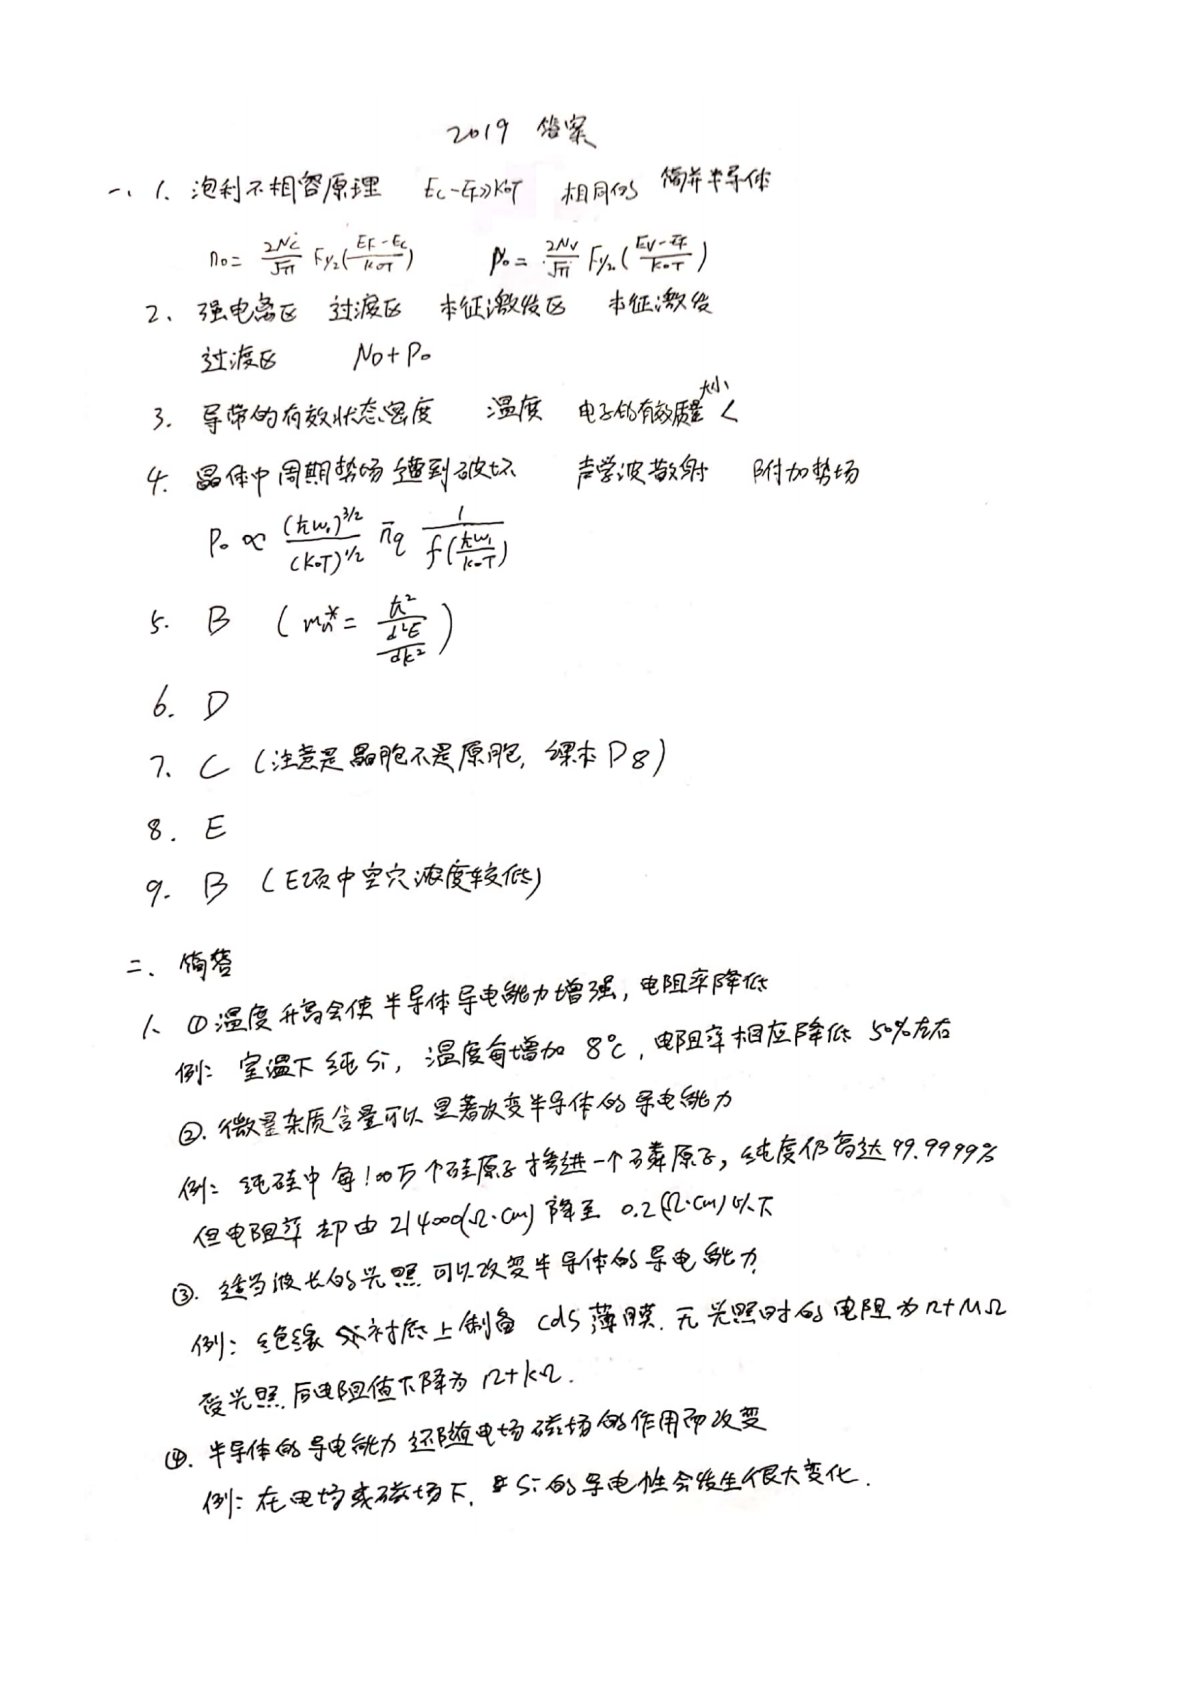 2019 答案
一、1、泡利不相容原理 Ec-EF》K0T 相同的 简并半导体
n0= 2Nc/√π F1/2(EF-Ec/K0T) p0= 2Nv/√π F1/2(Ev-EF/K0T)
2、强电离区 过渡区 本征激发区 本征激发
过渡区 ND+P0
3. 导带的有效状态密度 温度 电子的有效质量大小 <
4. 晶体中周期势场遭到破坏 声学波散射 附加势场
P0 ∝ (ħω1)^3/2/(K0T)^1/2 n̄q 1/f(ħω1/K0T)
5. B (mn*= ħ²/(d²E/dk²))
6. D
7、C (注意是晶胞不是原胞, 课本P8)
8. E
9. B (E项中空穴浓度较低)
二、简答
1、①温度升高会使半导体导电能力增强, 电阻率降低
例: 室温下纯Si, 温度每增加 8℃, 电阻率相应降低 50%左右
②. 微量杂质含量可以显著改变半导体的导电能力
例: 纯硅中每100万个硅原子掺进一个磷原子, 纯度仍高达99.9999%
但电阻率却由214000(Ω·cm)降至 0.2(Ω·cm)以下
③. 适当波长的光照可以改变半导体的导电能力,
例: 绝缘衬底上制备 CdS 薄膜. 无光照时的电阻为几十MΩ
受光照后电阻值下降为几十kΩ.
④. 半导体的导电能力还随电场磁场的作用而改变
例: 在电场或磁场下, Si的导电性会发生很大变化.